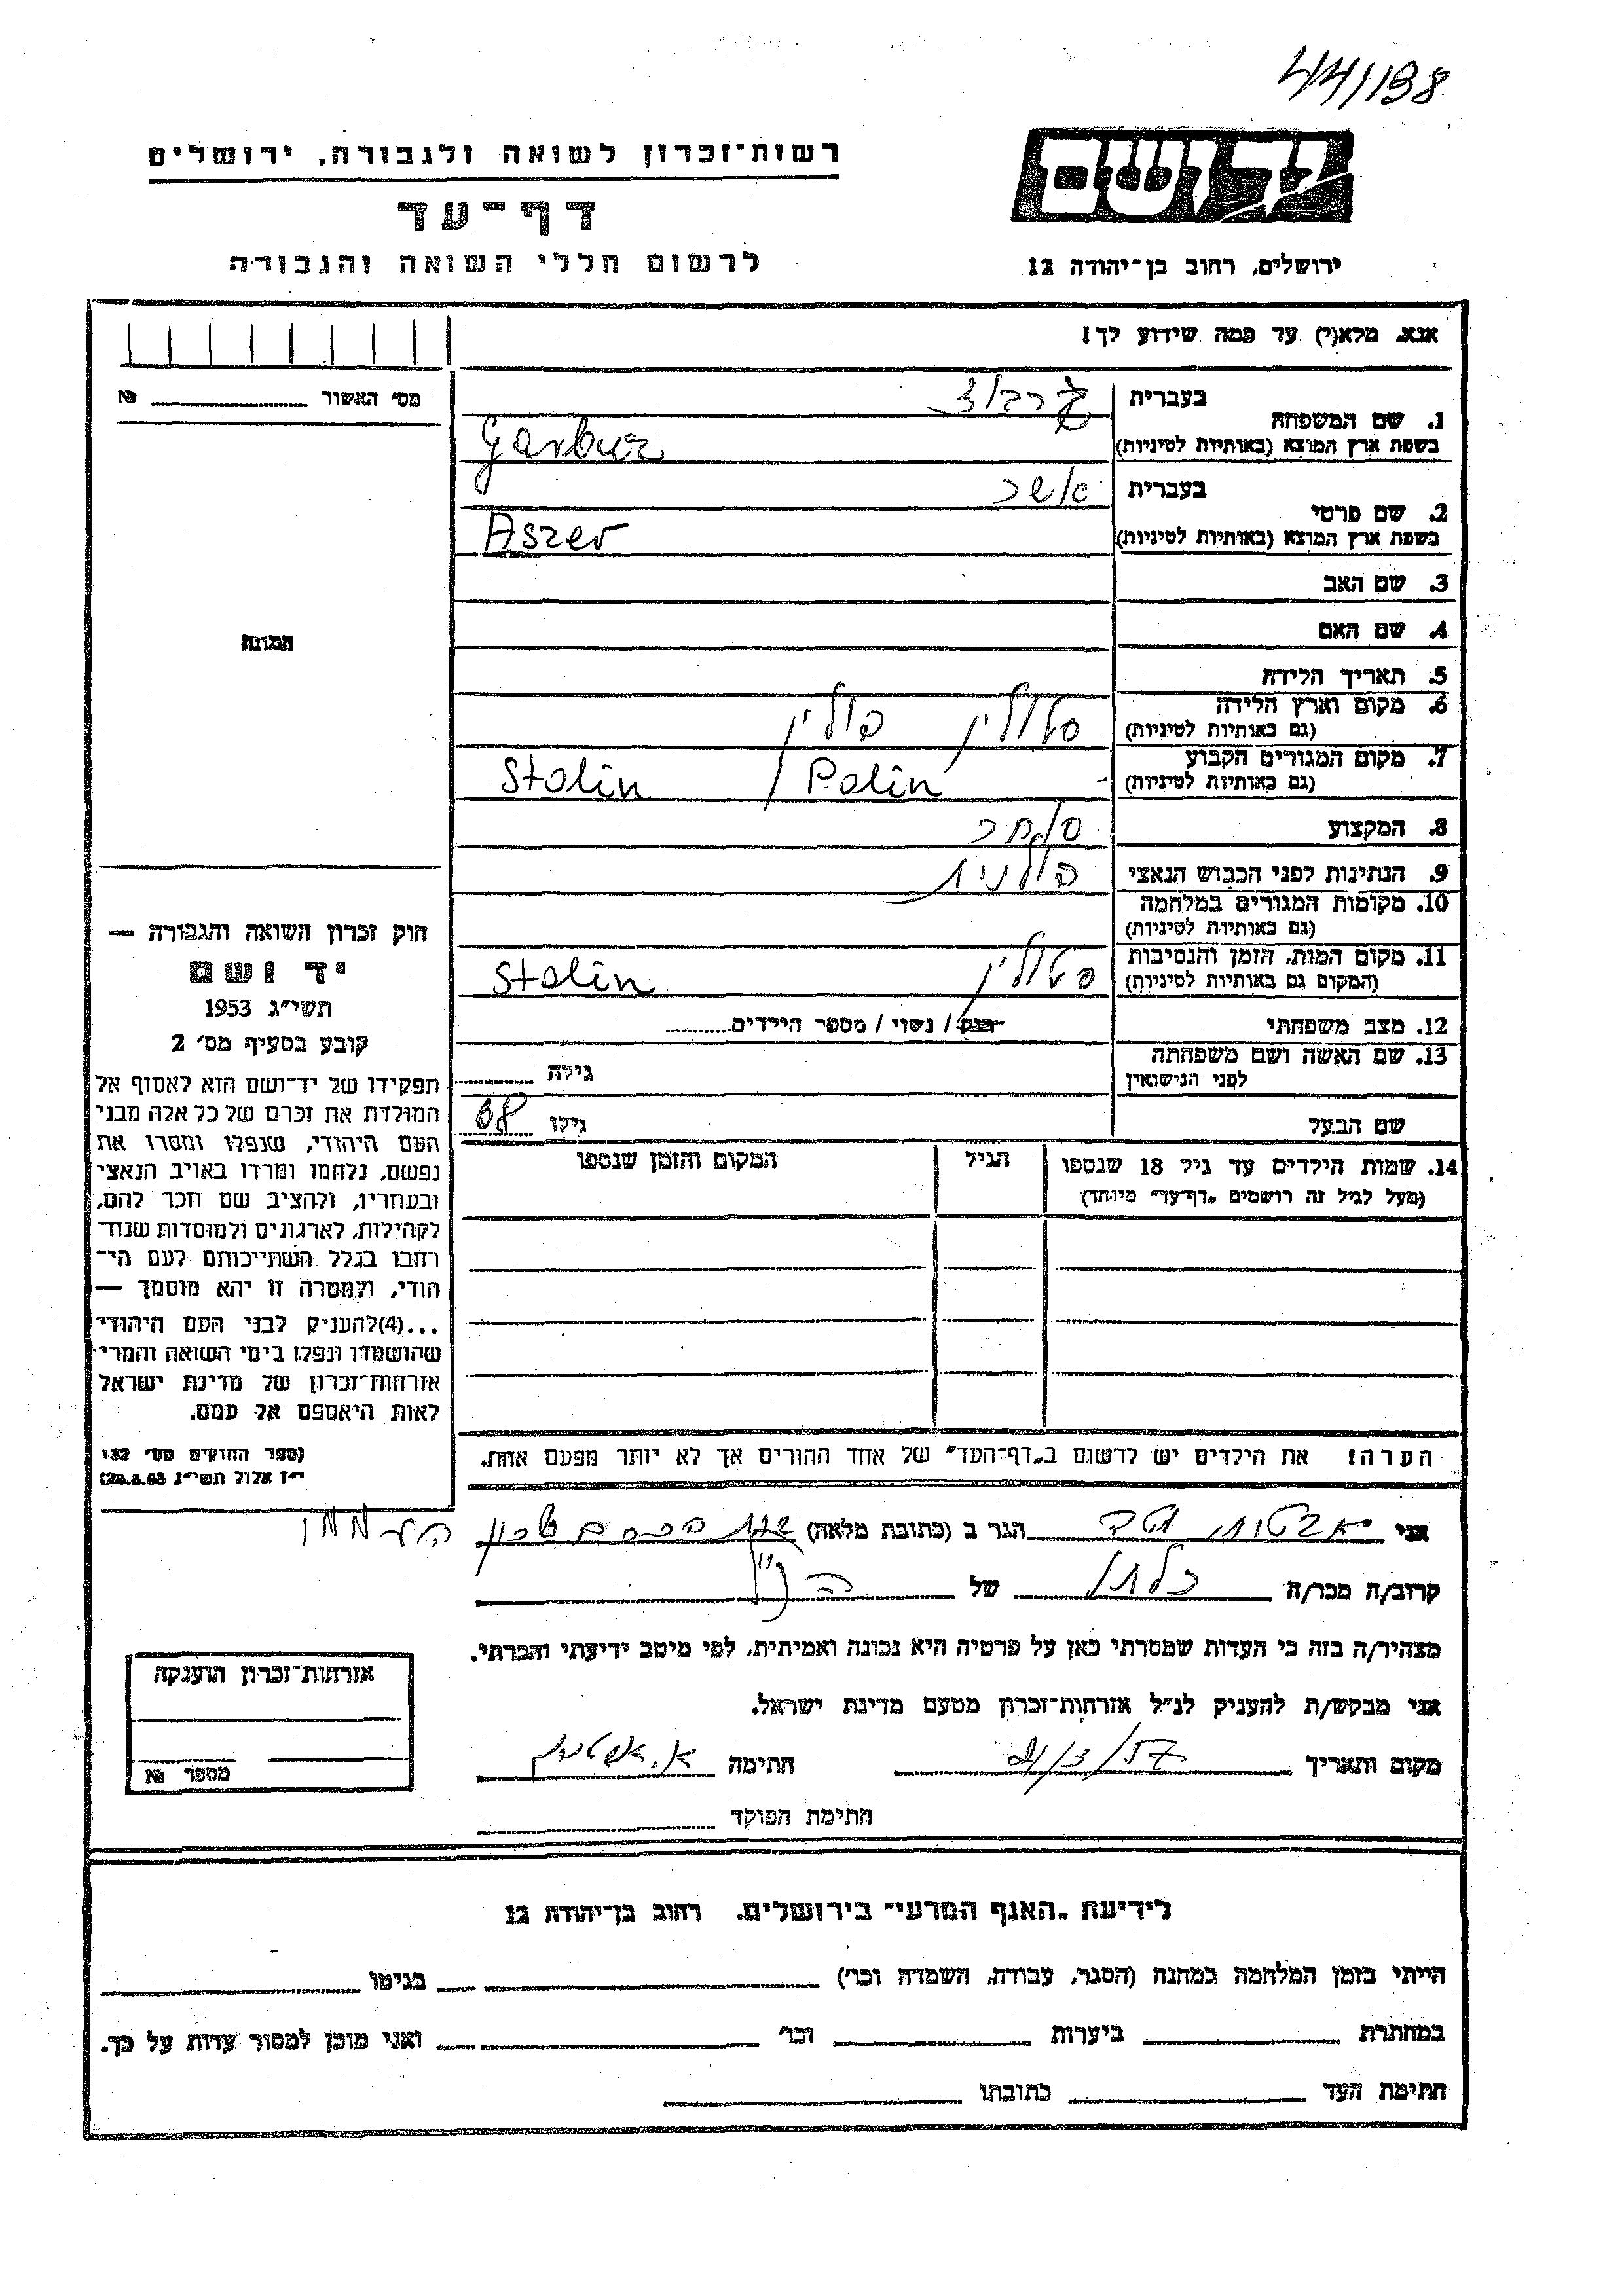 44/198
יד ושם
רשות־זכרון לשואה ולגבורה, ירושלים
דף־עד
לרשום חללי השואה והגבורה
ירושלים, רחוב בן־יהודה 12
אנא, מלא(י) עד כמה שידוע לך!
מס׳ האשור №
1. שם המשפחה
בעברית גרבוז
בשפת ארץ המוצא (באותיות לטיניות) Garbuz
2. שם פרטי
בעברית אשר
בשפת ארץ המוצא (באותיות לטיניות) Aszer
3. שם האב
4. שם האם
תמונה
5. תאריך הלידה
6. מקום וארץ הלידה סטולין פולין
(גם באותיות לטיניות)
7. מקום המגורים הקבוע Stolin / Polin
(גם באותיות לטיניות)
8. המקצוע סוחר
9. הנתינות לפני הכבוש הנאצי פולנית
10. מקומות המגורים במלחמה
(גם באותיות לטיניות)
11. מקום המות, הזמן והנסיבות סטולין Stolin
(המקום גם באותיות לטיניות)
12. מצב משפחתי רווק / נשוי / מספר הילדים
13. שם האשה ושם משפחתה
לפני הנישואין
גילה
שם הבעל
גילו 68
14. שמות הילדים עד גיל 18 שנספו הגיל המקום והזמן שנספו
(מעל לגיל זה רושמים „דף־עד״ מיוחד)
הערה! את הילדים יש לרשום ב„דף־העד״ של אחד ההורים אך לא יותר מפעם אחת.
חוק זכרון השואה והגבורה —
יד ושם
תשי״ג 1953
קובע בסעיף מס׳ 2
תפקידו של יד־ושם הוא לאסוף אל
המולדת את זכרם של כל אלה מבני
העם היהודי, שנפלו ומסרו את
נפשם, נלחמו ומרדו באויב הנאצי
ובעוזריו, ולהציב שם וזכר להם,
לקהילות, לארגונים ולמוסדות שנח־
רבו בגלל השתייכותם לעם הי־
הודי, ולמטרה זו יהא מוסמך —
...(4)להעניק לבני העם היהודי
שהושמדו ונפלו בימי השואה והמרי
אזרחות־זכרון של מדינת ישראל
לאות היאספם אל עמם.
(ספר החוקים מס׳ 132
י״ז אלול תשי״ג 28.8.53)
אני הגר ב (כתובת מלאה)
קרוב/ה מכר/ה של
מצהיר/ה בזה כי העדות שמסרתי כאן על פרטיה היא נכונה ואמיתית, לפי מיטב ידיעתי והכרתי.
אני מבקש/ת להעניק לנ״ל אזרחות־זכרון מטעם מדינת ישראל.
מקום ותאריך חתימה
חתימת הפוקד
אזרחות־זכרון הוענקה
מספר №
לידיעת „האגף המדעי״ בירושלים, רחוב בן־יהודה 12
הייתי בזמן המלחמה במחנה (הסגר, עבודה, השמדה וכו׳) בגיטו
במחתרת ביערות וכו׳ ואני מוכן למסור עדות על כך.
חתימת העד כתובתו